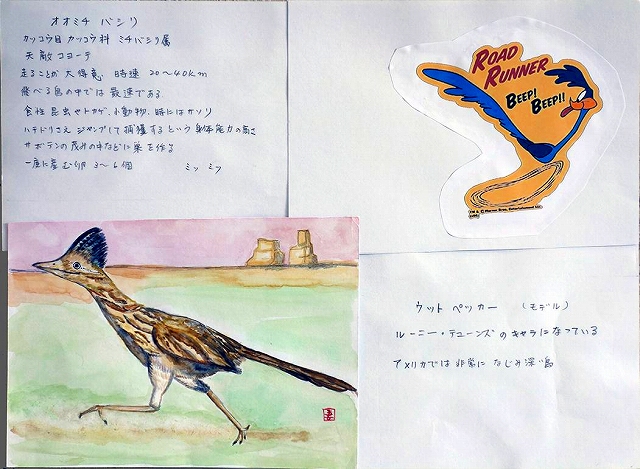 オオミチ バシリ
カッコウ目 カッコウ科 ミチバシリ属
天敵 コヨーテ
走ることが 大得意 時速 20〜40km
飛べる鳥の中では 最速である
食性 昆虫やトカゲ、小動物、時にはサソリ
ハチドリさえ ジャンプして捕獲するという 身体能力の高さ
サボテンの茂みの中などに巣を作る
一度に産む卵 3〜6個
ミッ ミッ
ROAD
RUNNER
BEEP!
BEEP!!
ウット ペッカー (モデル)
ルーニー・テューンズ のキャラになっている
アメリカでは 非常に なじみ深い鳥